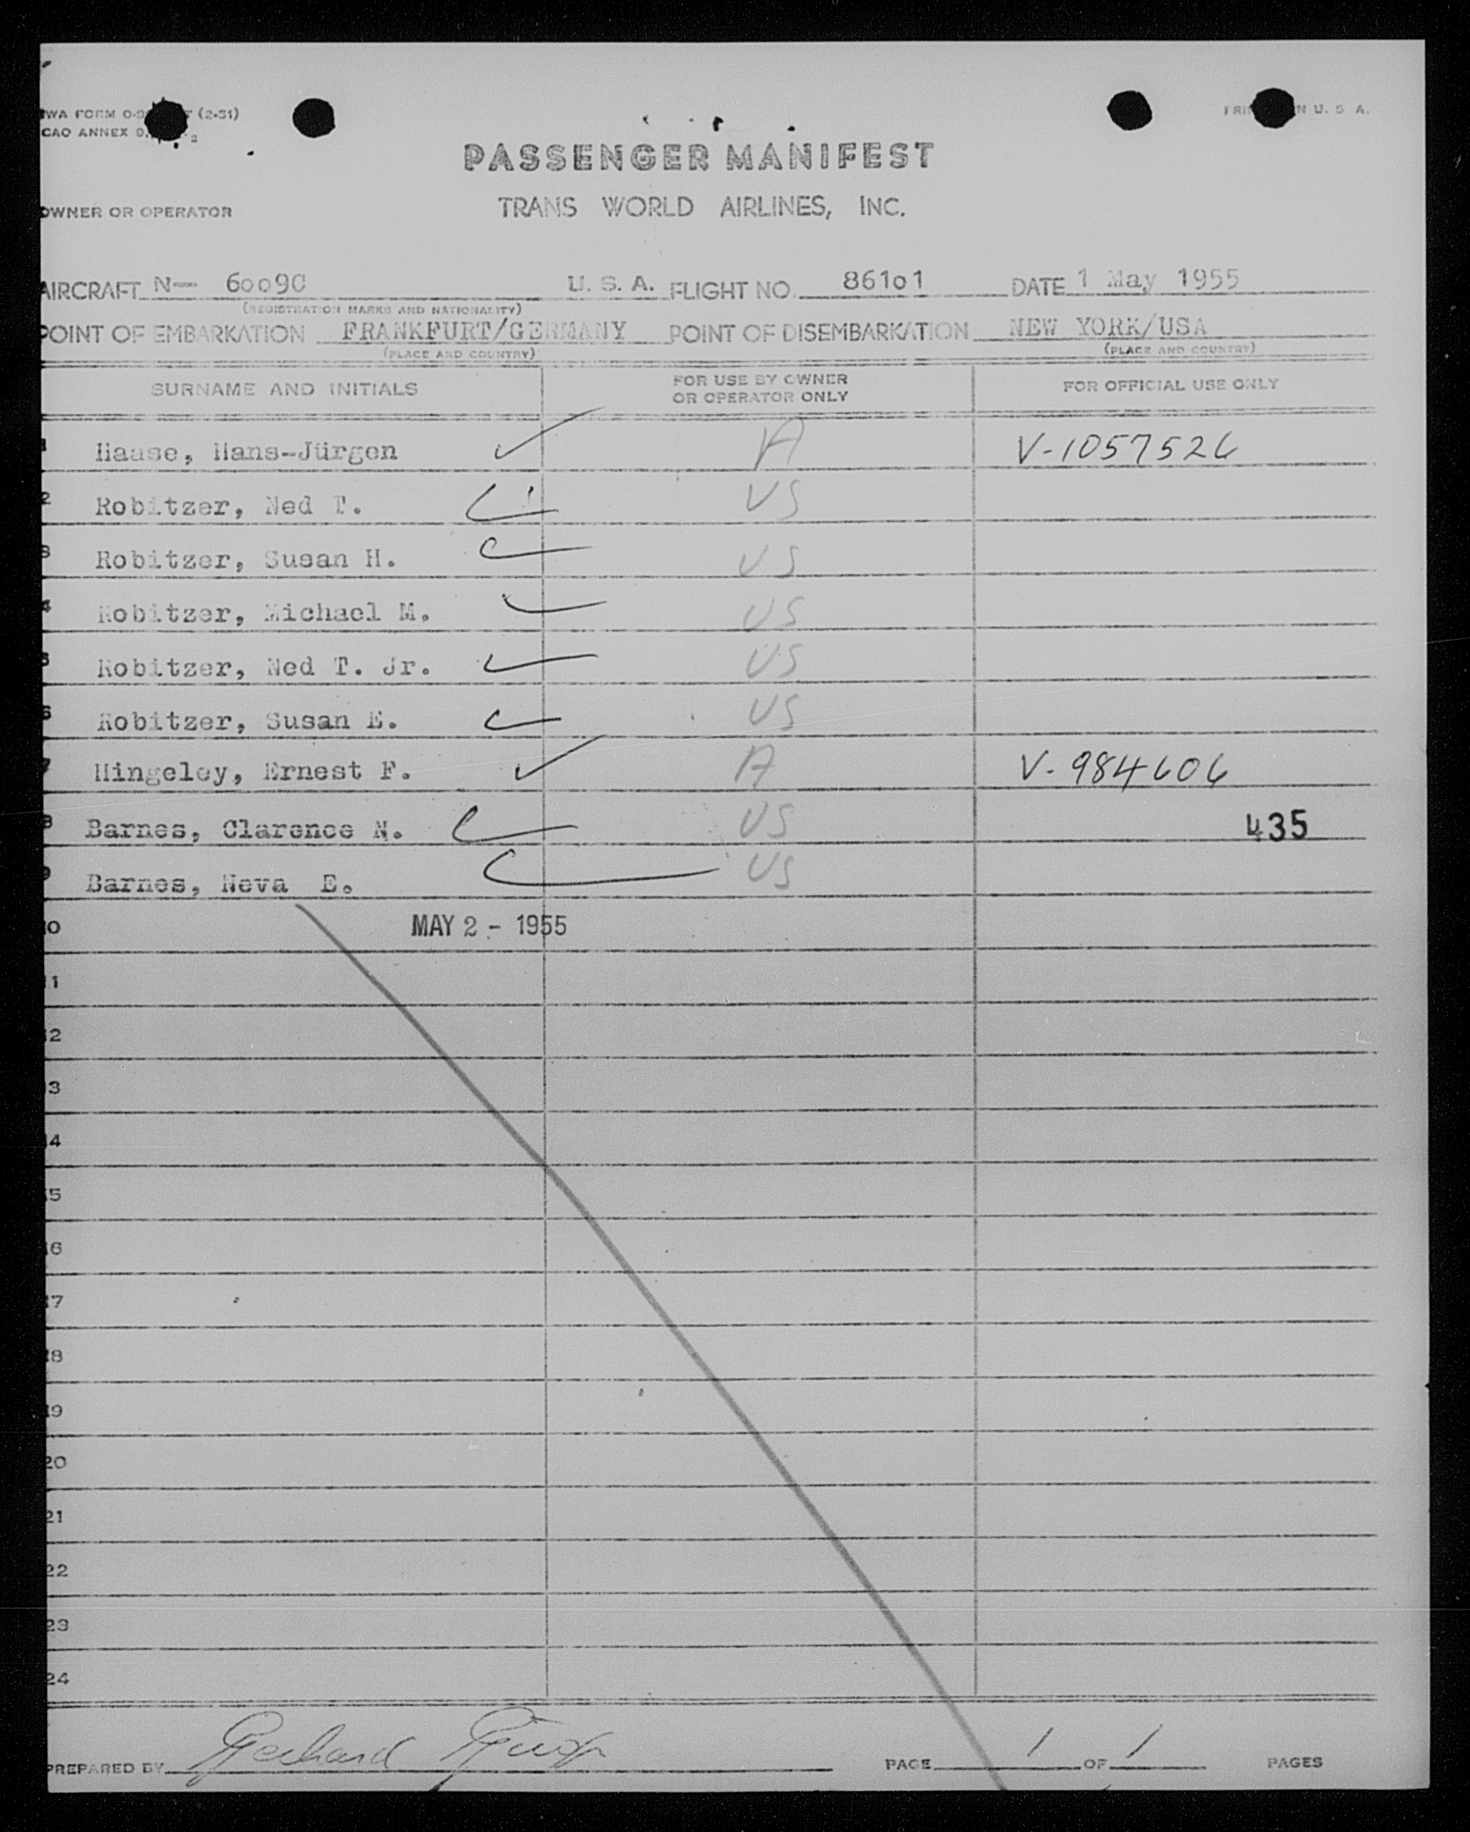 PRINTED IN U. S. A.
PASSENGER MANIFEST
OWNER OR OPERATOR TRANS WORLD AIRLINES, INC.
AIRCRAFT N— 6oo9C U. S. A. FLIGHT NO. 861o1 DATE 1 May 1955
(REGISTRATION MARKS AND NATIONALITY)
POINT OF EMBARKATION FRANKFURT/GERMANY POINT OF DISEMBARKATION NEW YORK/USA
(PLACE AND COUNTRY) (PLACE AND COUNTRY)
SURNAME AND INITIALS FOR USE BY OWNER OR OPERATOR ONLY FOR OFFICIAL USE ONLY
1 Haase, Hans-Jürgen A V-1057526
2 Robitzer, Ned T. US
3 Robitzer, Susan H. US
4 Robitzer, Michael M. US
5 Robitzer, Ned T. Jr. US
6 Robitzer, Susan E. US
7 Hingeley, Ernest F. A V-984606
8 Barnes, Clarence N. US 435
9 Barnes, Neva E. US
10 MAY 2 - 1955
11
12
13
14
15
16
17
18
19
20
21
22
23
24
PREPARED BY Gerhard PAGE 1 OF 1 PAGES